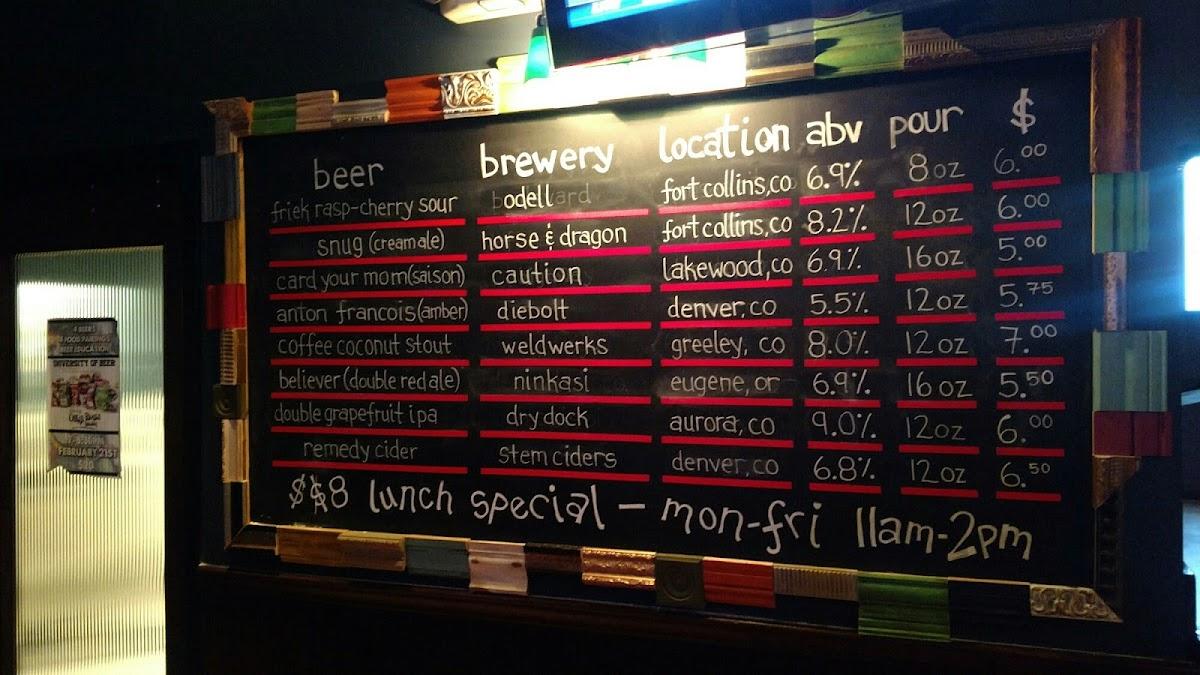 beer brewery location abv pour $
friek rasp-cherry sour odell fort collins,co 6.9% 8oz 6.00
snug (cream ale) horse & dragon fort collins,co 8.2% 12oz 6.00
card your mom(saison) caution lakewood,co 6.9% 16oz 5.00
anton francois(amber) diebolt denver, co 5.5% 12oz 5.75
coffee coconut stout weldwerks greeley, co 8.0% 12oz 7.00
believer (double red ale) ninkasi eugene, or 6.9% 16oz 5.50
double grapefruit ipa dry dock aurora, co 9.0% 12oz 6.00
remedy cider stem ciders denver,co 6.8% 12oz 6.50
$$8 lunch special - mon-fri 11am-2pm
4 BEERS
4 FOOD PAIRINGS
BEER EDUCATION
UNIVERSITY OF BEER
FEBRUARY 21ST